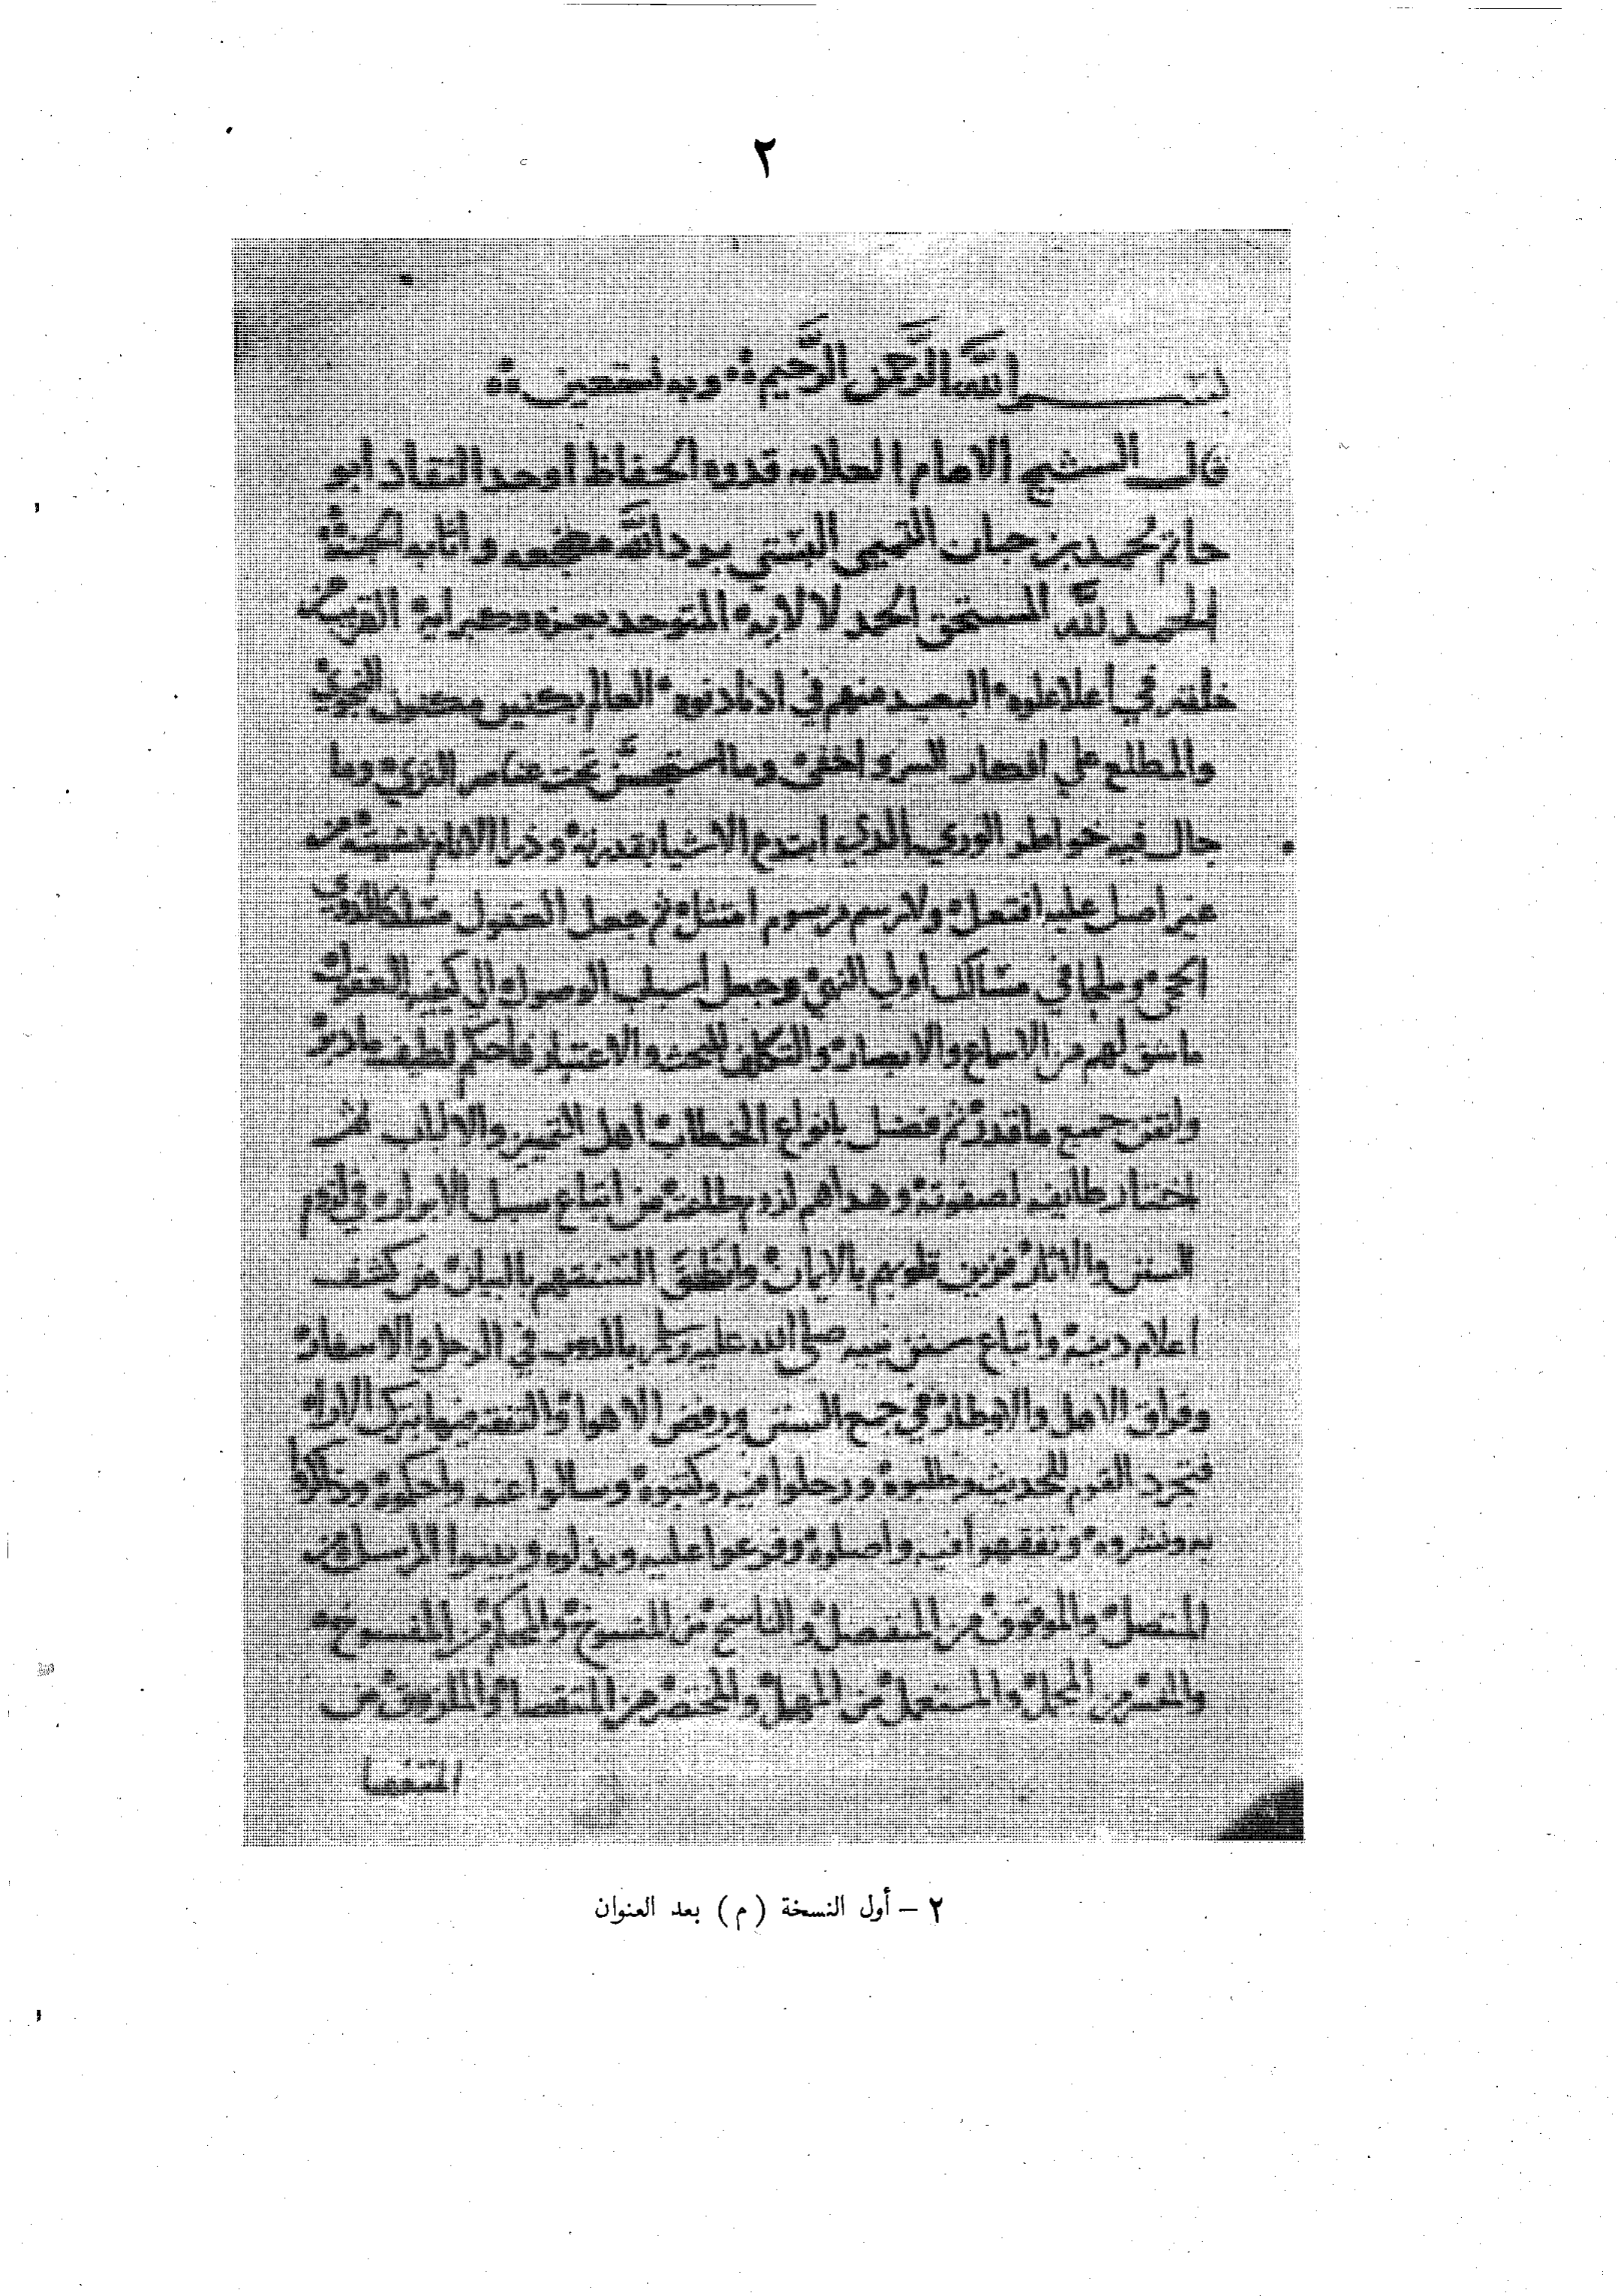 ٢
بسم الله الرحمن الرحيم وبه نستعين
قال الشيخ الامام العلامه قدوه الحفاظ اوحد النقاد ابو
حاتم محمد بن حبان التميمي البستي برد الله مضجعه واثابه الجنة
الحمد لله المستحق الحمد لالايه المتوحد بعزه وكبرايه القريب من
خلقه في اعلا علوه البعيد منهم في ادنا دنوه العالم بكنين مكنون النجوي
والمطلع علي افكار السر واخفي وما استجن تحت عناصر الثري وما
جال فيه خواطر الوري الذي ابتدع الاشيا بقدرته وذرا الانام بمشيته من
غير اصل عليه افتعل ولا رسم مرسوم امتثل ثم جعل العقول مسلكا لذوي
الحجي وملجا في مسالك اولي النهي وجعل اسباب الوصول الي كيفيه العقول
ما شق لهم من الاسماع والابصار والتكلف للبحث والاعتبار فاحكم لطيف ما دبر
واتقن جميع ما قدر ثم فضل بانواع الخطاب اهل التميز والالباب ثم
اختار طايفه لصفوته وهداهم لزوم طاعته من اتباع سبل الابرار في لزوم
السنن والاثار فزين قلوبهم بالايمان وانطق السنتهم بالبيان من كشف
اعلام دينه واتباع سنن نبيه صلى الله عليه وسلم بالدوب في الرحل والاسفار
وفراق الاهل والاوطار في جمع السنن ورفض الاهوا والتفقه فيها بترك الارا
فتجرد القوم للحديث وطلبوه ورحلوا فيه وكتبوه وسالوا عنه واحكموه وذاكروا
به ونشروه وتفقهوا فيه واصلوه وفرعوا عليه وبذلوه وبينوا المرسل من
المتصل والموقوف من المنفصل والناسخ من المنسوخ والمحكم من المفسوخ
والمفسر من المجمل والمستعمل من المهمل والمختصر من المتقصا والملزوق من
المتفصا
٢ - أول النسخة (م) بعد العنوان